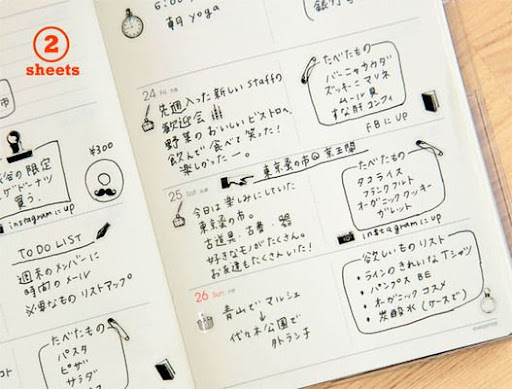 2
sheets
6:00
朝 yoga
24 Fri
先週入った新しい Staffの
歓迎会
野菜のおいしいビストロへ。
飲んで食べて笑った!
楽しかったー。
たべたもの
バーニャカウダ
ズッキーニ マリネ
ムール貝
すな肝 コンフィ
FBに up
25 Sat
東京蚤の市@京王閣
今日は楽しみにしていた
東京蚤の市。
古道具・古着・器
好きなモノがたくさん。
お友達もたくさんいた!
たべたもの
タコライス
フランクフルト
オーガニッククッキー
ガレット
instagramに up
26 Sun
青山でマルシェ
↓
代々木公園で
外ランチ
欲しいものリスト
・ラインのきれいなTシャツ
・パンプス BE
・オーガニック コスメ
・炭酸水(ケースで)
の限定
ドーナツ
買う。
¥300
instagramに up
TO DO LIST
週末のメンバーに
時間のメール
必要なもの リストアップ
たべたもの
パスタ
ピザ
サラダ